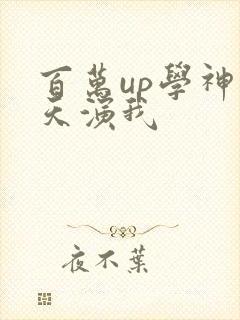 百萬up學神
天演我
夜不葉